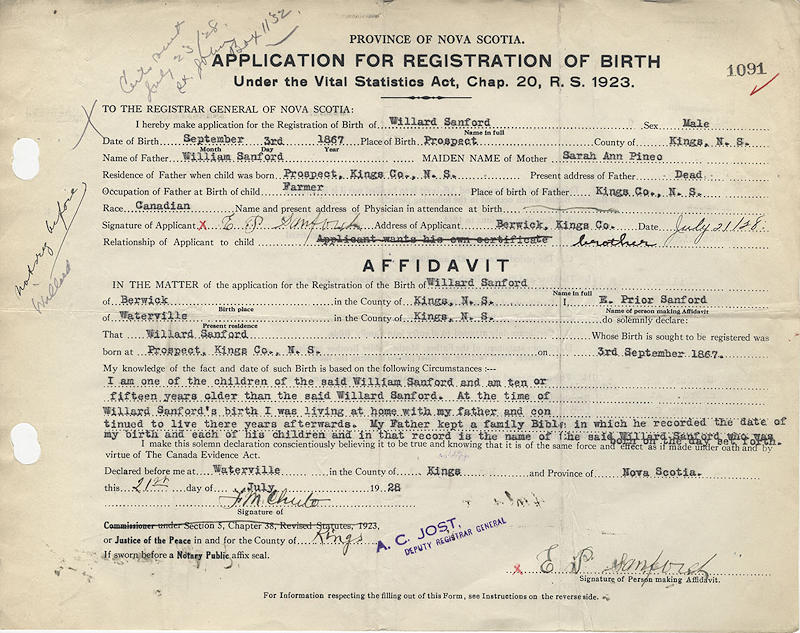 Certs sent
July 23/28
Box 1152
PROVINCE OF NOVA SCOTIA.
APPLICATION FOR REGISTRATION OF BIRTH
1091
Under the Vital Statistics Act, Chap. 20, R. S. 1923.
TO THE REGISTRAR GENERAL OF NOVA SCOTIA:
I hereby make application for the Registration of Birth of Willard Sanford Sex Male
Name in full
Date of Birth September 3rd 1867 Place of Birth Prospect County of Kings, N. S.
Month Day Year
Name of Father William Sanford MAIDEN NAME of Mother Sarah Ann Pineo
Residence of Father when child was born Prospect, Kings Co., N. S. Present address of Father Dead
Occupation of Father at Birth of child Farmer Place of birth of Father Kings Co., N. S.
Race Canadian Name and present address of Physician in attendance at birth
Signature of Applicant x E P Sanford Address of Applicant Berwick, Kings Co. Date July 21/28.
Relationship of Applicant to child Applicant wants his own certificate brother
not reg before
Willard
AFFIDAVIT
IN THE MATTER of the application for the Registration of the Birth of Willard Sanford
Name in full
of Berwick in the County of Kings, N. S. I, E. Prior Sanford
Birth place Name of person making Affidavit
of Waterville in the County of Kings, N. S. do solemnly declare:
Present residence
That Willard Sanford Whose Birth is sought to be registered was
born at Prospect, Kings Co., N. S. on 3rd September 1867.
My knowledge of the fact and date of such Birth is based on the following Circumstances :---
I am one of the children of the said William Sanford and am ten or
fifteen years older than the said Willard Sanford. At the time of
Willard Sanford's birth I was living at home with my father and con
tinued to live there years afterwards. My Father kept a family Bible in which he recorded the date of
my birth and each of his children and in that record is the name of the said Willard Sanford who was
born on the day set forth.
I make this solemn declaration conscientiously believing it to be true and knowing that it is of the same force and effect as if made under oath and by
virtue of The Canada Evidence Act.
Declared before me at Waterville in the County of Kings and Province of Nova Scotia.
this 21st day of July 1928
F M Chute
Signature of
Commissioner under Section 5, Chapter 38, Revised Statutes, 1923,
or Justice of the Peace in and for the County of Kings
A. C. JOST,
DEPUTY REGISTRAR GENERAL
If sworn before a Notary Public affix seal.
x E P Sanford
Signature of Person making Affidavit.
For Information respecting the filling out of this Form, see Instructions on the reverse side.